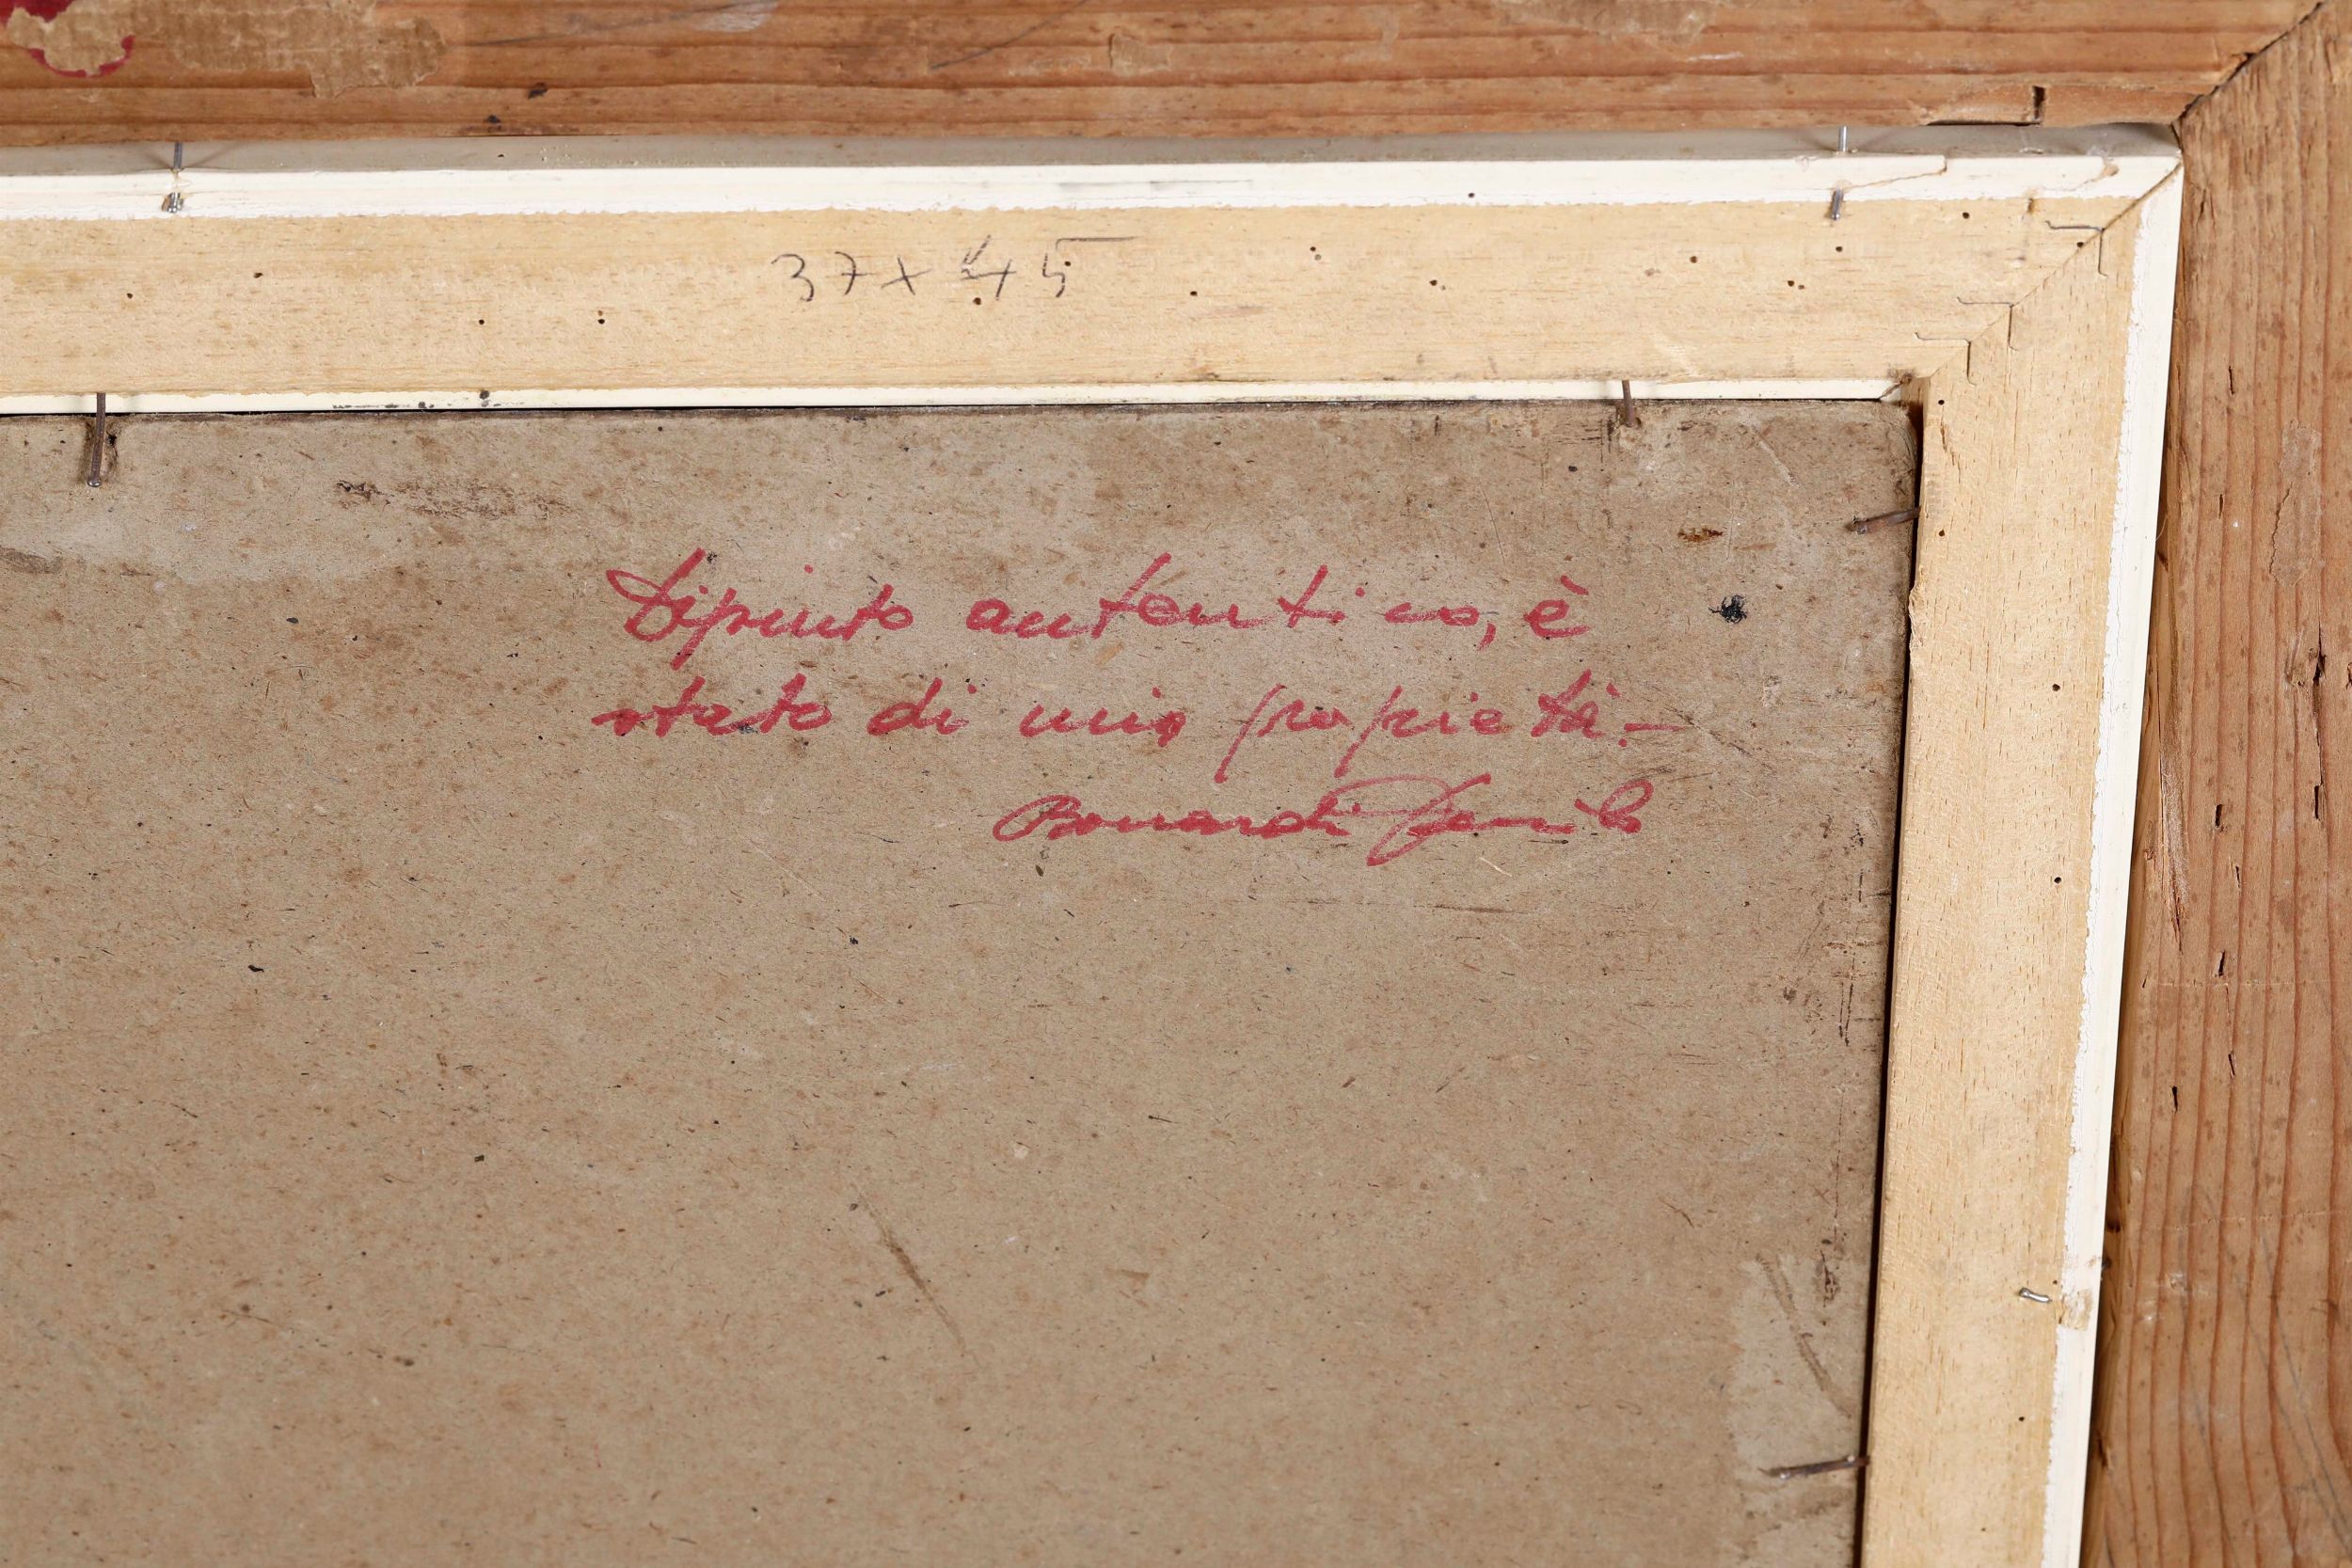 37 x 45
Dipinto autentico, è
stato di mia proprietà.-